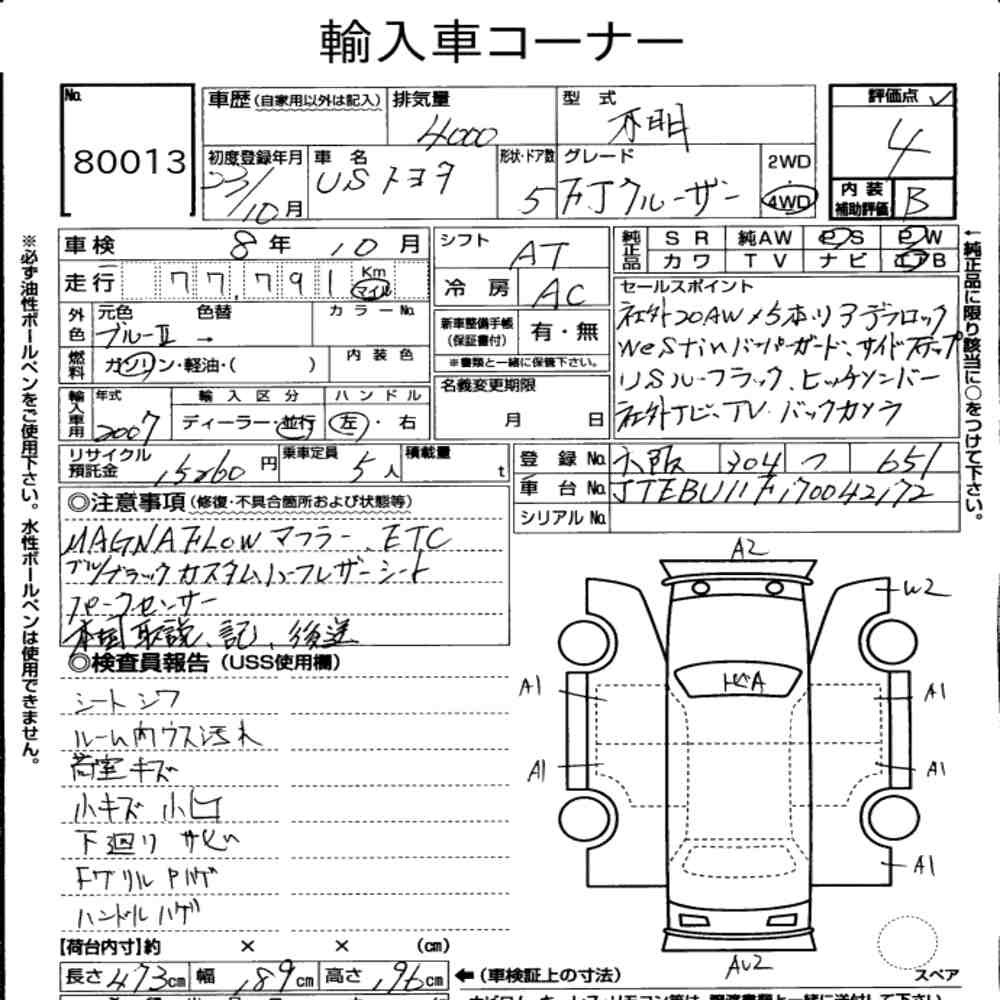 輸入車コーナー
No. 80013
車歴 (自家用以外は記入) 排気量 4000 型式 不明 評価点 4
初度登録年月 23/10月 車名 USトヨタ 形状・ドア数 5 グレード FJクルーザー 2WD・4WD 内装補助評価 B
車検 8年 10月 シフト AT 純正品 SR 純AW PS PW
走行 77,791 Km マイル 冷房 AC カワ TV ナビ エアB
外色 元色 ブルーⅡ 色替 → カラーNo. 新車整備手帳 (保証書付) 有・無
セールスポイント
社外20AW×5本リアデフロック
WeStinバーパーガード、サイドステップ
USルーフラック、ヒッチメンバー
社外ナビ、TV バックカメラ
※書類と一緒に保管下さい。
燃料 ガソリン・軽油・( ) 内装色 名義変更期限 月 日
輸入車用 年式 2007 輸入区分 ディーラー・並行 ハンドル 左・右
リサイクル預託金 15260円 乗車定員 5人 積載量 t
登録No. 大阪 304 つ 651
車台No. JTEBU11F170042172
シリアルNo.
◎注意事項 (修復・不具合箇所および状態等)
MAGNAFLOWマフラー、ETC
ブルー/ブラックカスタムハーフレザーシート
パークセンサー
取説、記、後送
◎検査員報告 (USS使用欄)
シートシワ
ルーム内ウス汚れ
荷室キズ
小キズ 小凹
下廻りサビ
Fグリル Pハゲ
ハンドルハゲ
A2
W2
トビA
A1
A1
A1
A1
A1
AU2
スペア
【荷台内寸】約 × × (cm)
長さ 473cm 幅 189cm 高さ 196cm ←(車検証上の寸法)
※必ず油性ボールペンをご使用下さい。水性ボールペンは使用できません。
←純正品に限り該当に○をつけて下さい。